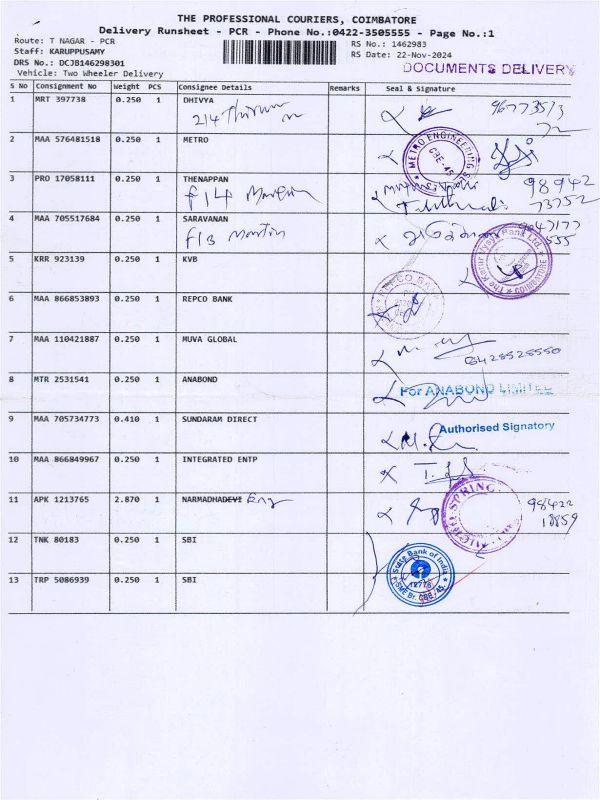 THE PROFESSIONAL COURIERS, COIMBATORE
Delivery Runsheet - PCR - Phone No.:0422-3505555 - Page No.:1
Route: T NAGAR - PCR
Staff: KARUPPUSAMY
DRS No.: DCJB146298301
Vehicle: Two Wheeler Delivery
RS No.: 1462983
RS Date: 22-Nov-2024
DOCUMENTS DELIVERY
S No Consignment No Weight PCS Consignee Details Remarks Seal & Signature
1 MRT 397738 0.250 1 DHIVYA
214
2 MAA 576481518 0.250 1 METRO
METRO ENGINEERING
CBE-45
3 PRO 17058111 0.250 1 THENAPPAN
F14
98942
73752
4 MAA 705517684 0.250 1 SARAVANAN
F13 Martin
5 KRR 923139 0.250 1 KVB
The Karur Vysya Bank Ltd.
COIMBATORE
6 MAA 866853893 0.250 1 REPCO BANK
REPCO BANK
7 MAA 110421887 0.250 1 MUVA GLOBAL
8428528550
8 MTR 2531541 0.250 1 ANABOND
For ANABOND LIMITED
9 MAA 705734773 0.410 1 SUNDARAM DIRECT
Authorised Signatory
10 MAA 866849967 0.250 1 INTEGRATED ENTP
11 APK 1213765 2.870 1 NARMADHADEVI Eng
SPRING
98422
18859
12 TNK 80183 0.250 1 SBI
State Bank of India
SME Br. CBE-45
13 TRP 5086939 0.250 1 SBI